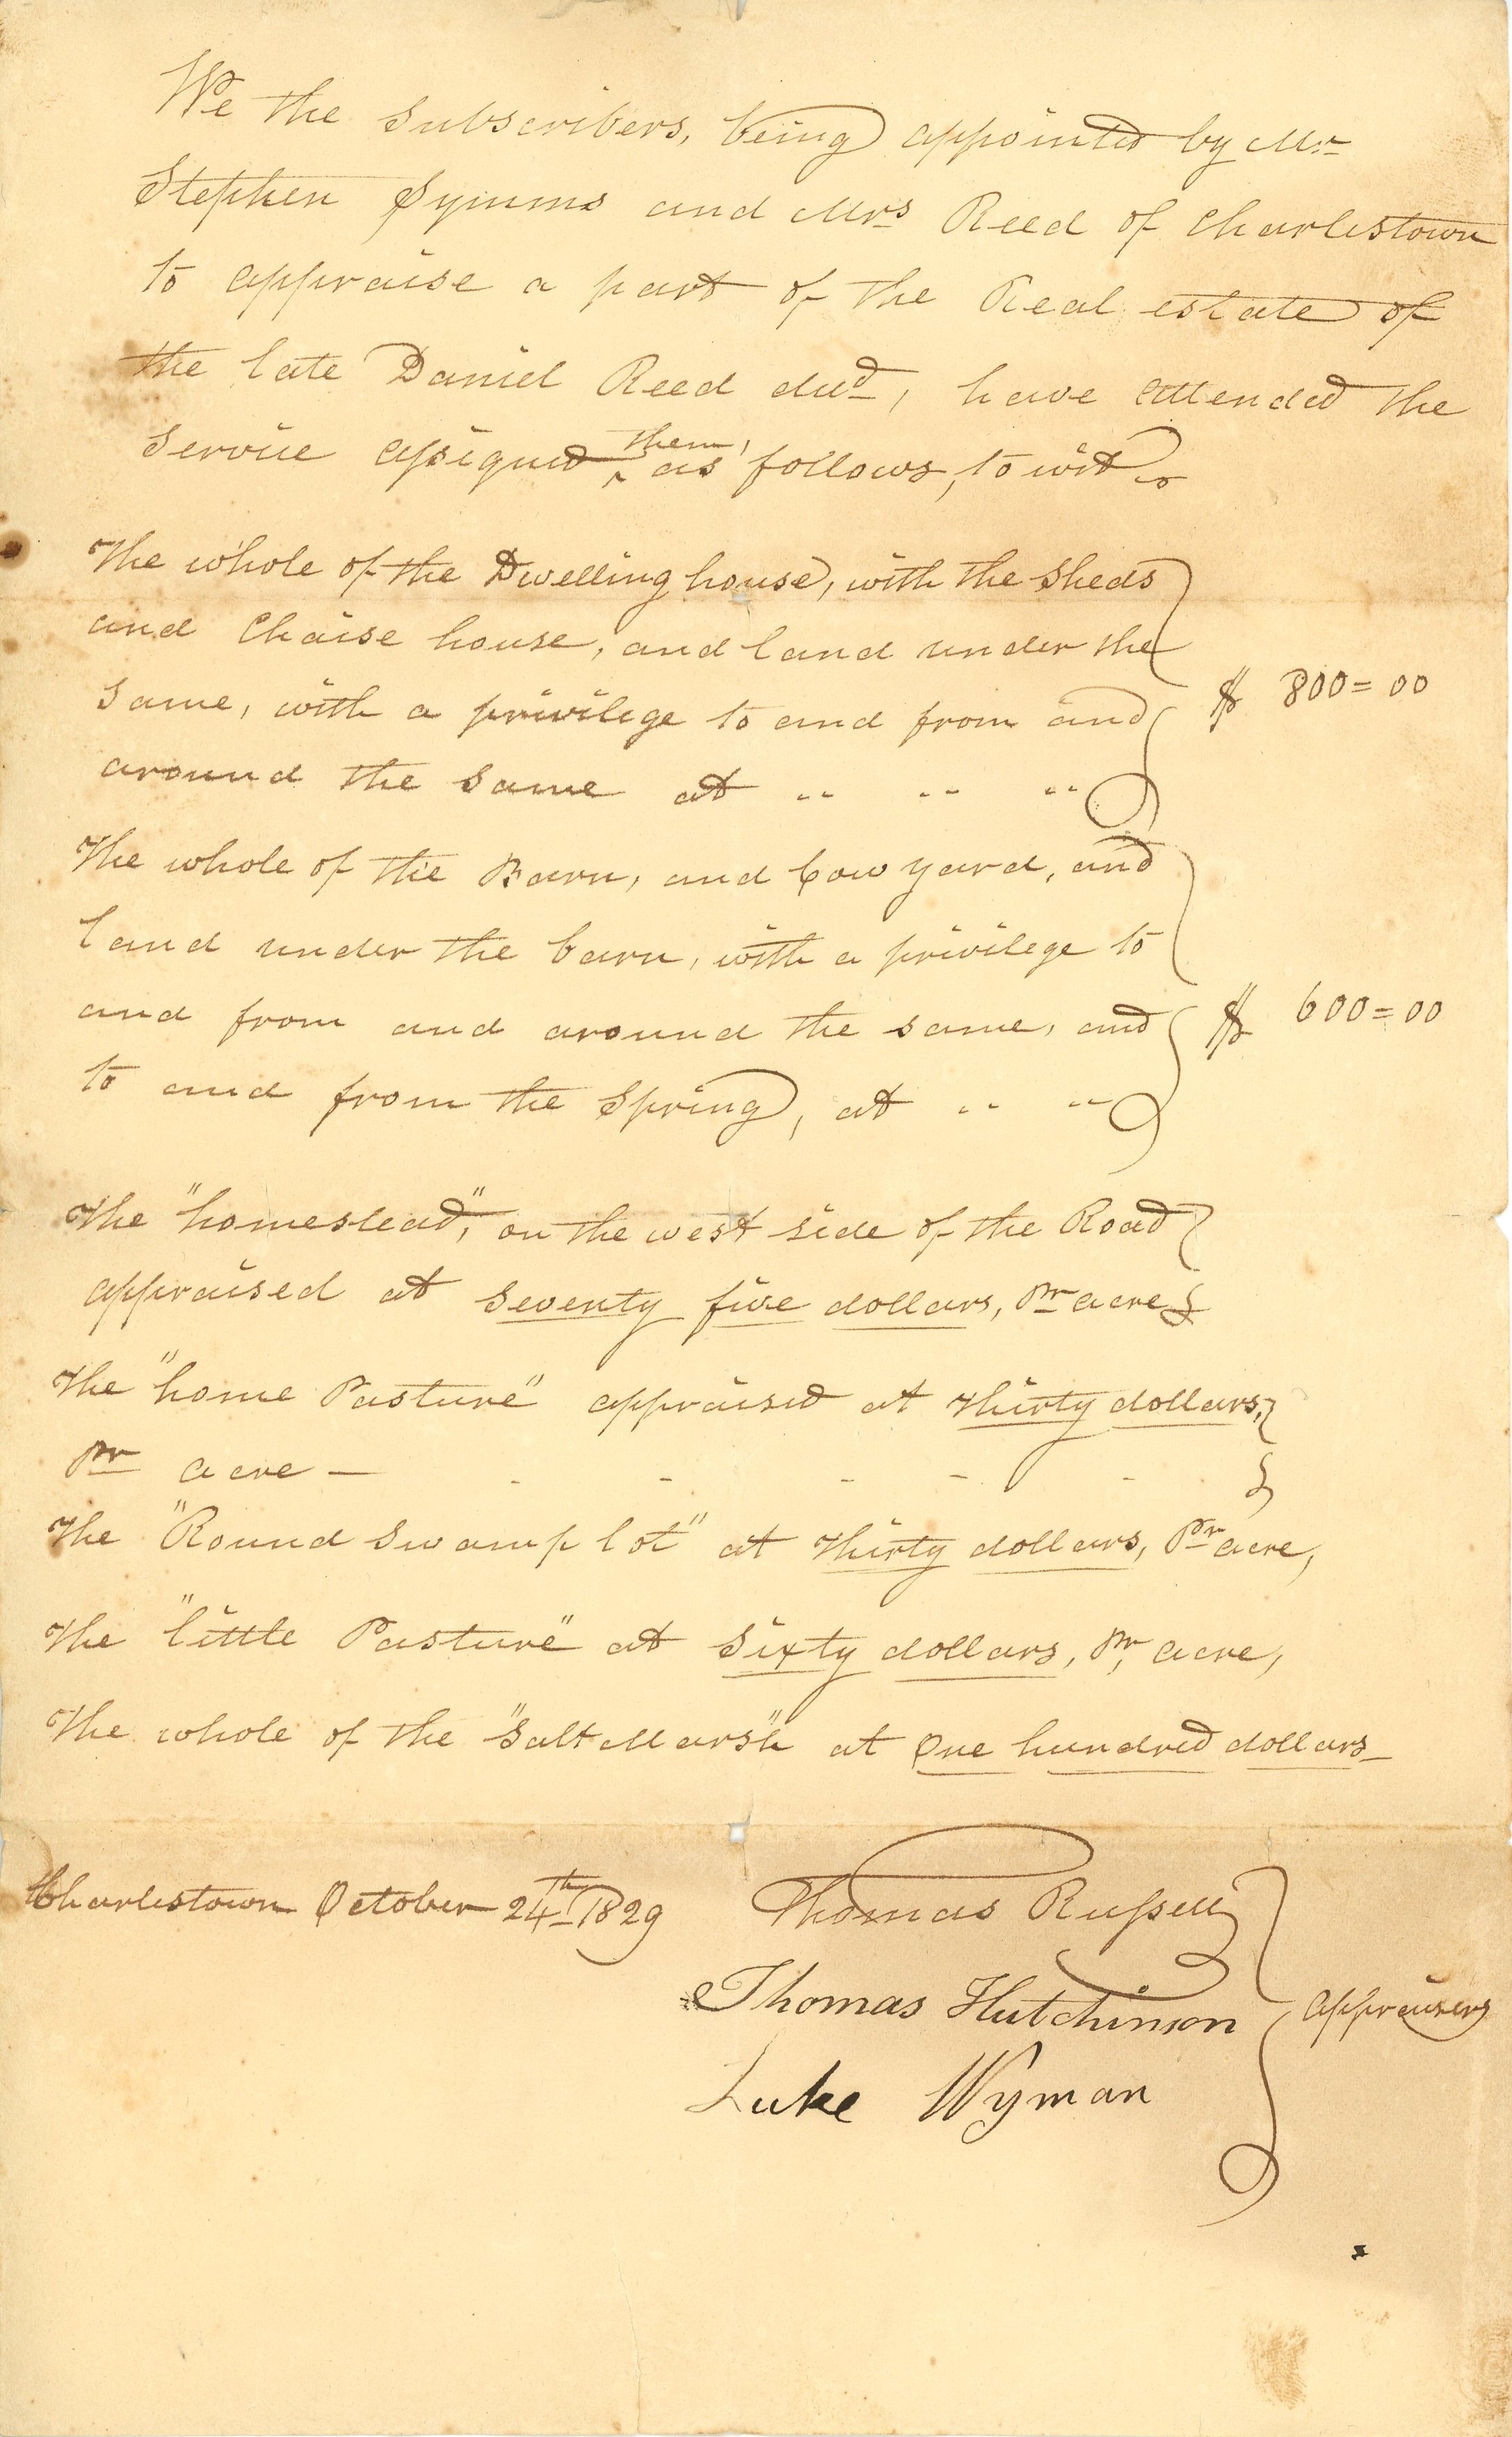 We the Subscribers, being appointed by Mr
Stephen Symms and Mrs Reed of Charlestown
to appraise a part of the Real estate of
the late Daniel Reed decd, have attended the
Service assigned them, as follows, to wit
The whole of the Dwelling house, with the Sheds
and Chaise house, and land under the
Same, with a privilege to and from and
around the Same at " " " $ 800=00
The whole of the Barn, and Cow yard, and
land under the barn, with a privilege to
and from and around the same, and $ 600=00
to and from the Spring, at " "
The "homestead," on the west side of the Road
appraised at Seventy five dollars, Pr acre
The "home Pasture" appraised at thirty dollars,
Pr acre - - - - - -
The "Round Swamp lot" at thirty dollars, Pr acre,
The "little Pasture" at Sixty dollars, Pr, acre,
The whole of the "Salt Marsh" at One hundred dollars
Charlestown October 24th 1829 Thomas Russell
Thomas Hutchinson appraisers
Luke Wyman